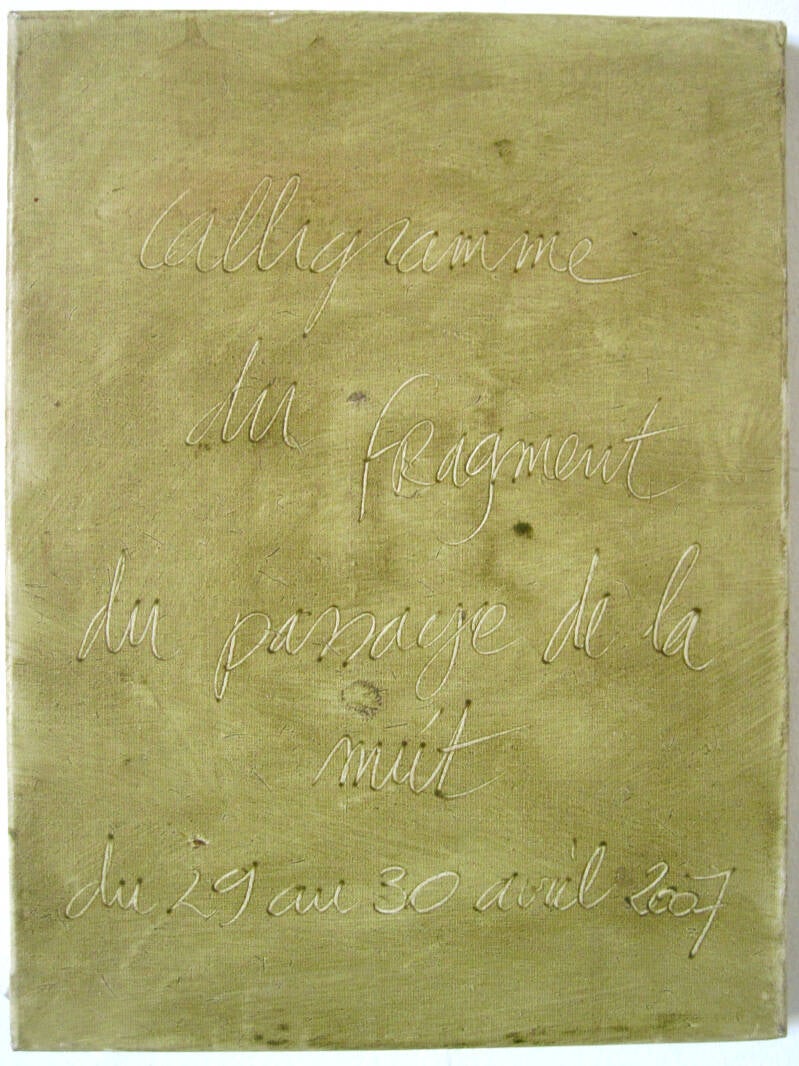 Calligramme
du fragment
du passage de la
nuit
du 29 au 30 avril 2007